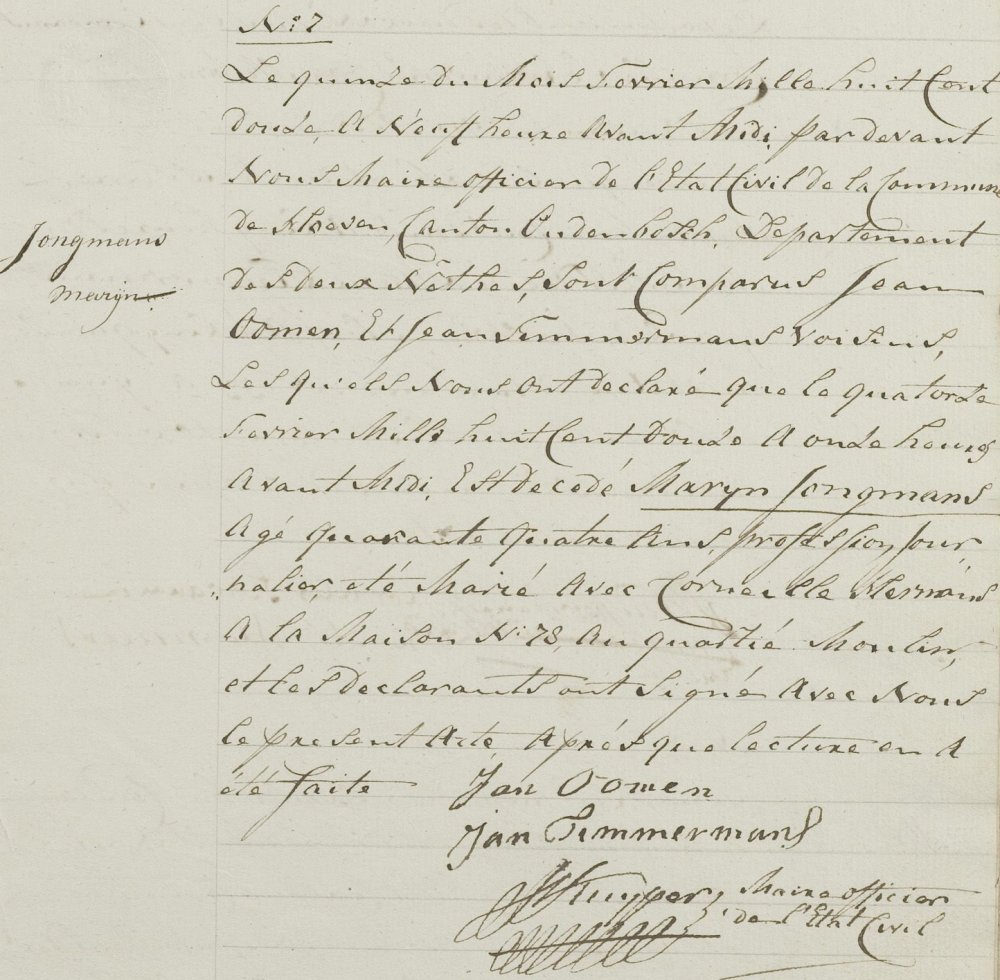 N:º 7
Le quinze du Mois Fevrier Mille huit Cent
douze, A Neuf heure Avant Midi, par devant
Nous Maire officier de l'Etat Civil de la Commune
de Hoeven, Canton Oudenbosch, Departement
des deux Néthes, Sont Comparus Jean
Oomen, Et Jean Timmermans Voisins,
Les quels Nous ont declaré que le quatorze
Fevrier Mille huit Cent Douze A onze heures
Avant Midi, Est decedé Maryn Jongmans
Agé quarante quatre Ans, profession Jour
nalier, été Marié Avec Corneille Hermans
A la Maison N:º 78, Au quartié Moulin,
et les declarants ont Signé Avec Nous
le present Acte, Aprés que lecture en A
été faite
Jongmans
Marijn
Jan Oomen
Jan Timmermans
Kuyper, Maire officier
de l'Etat Civil